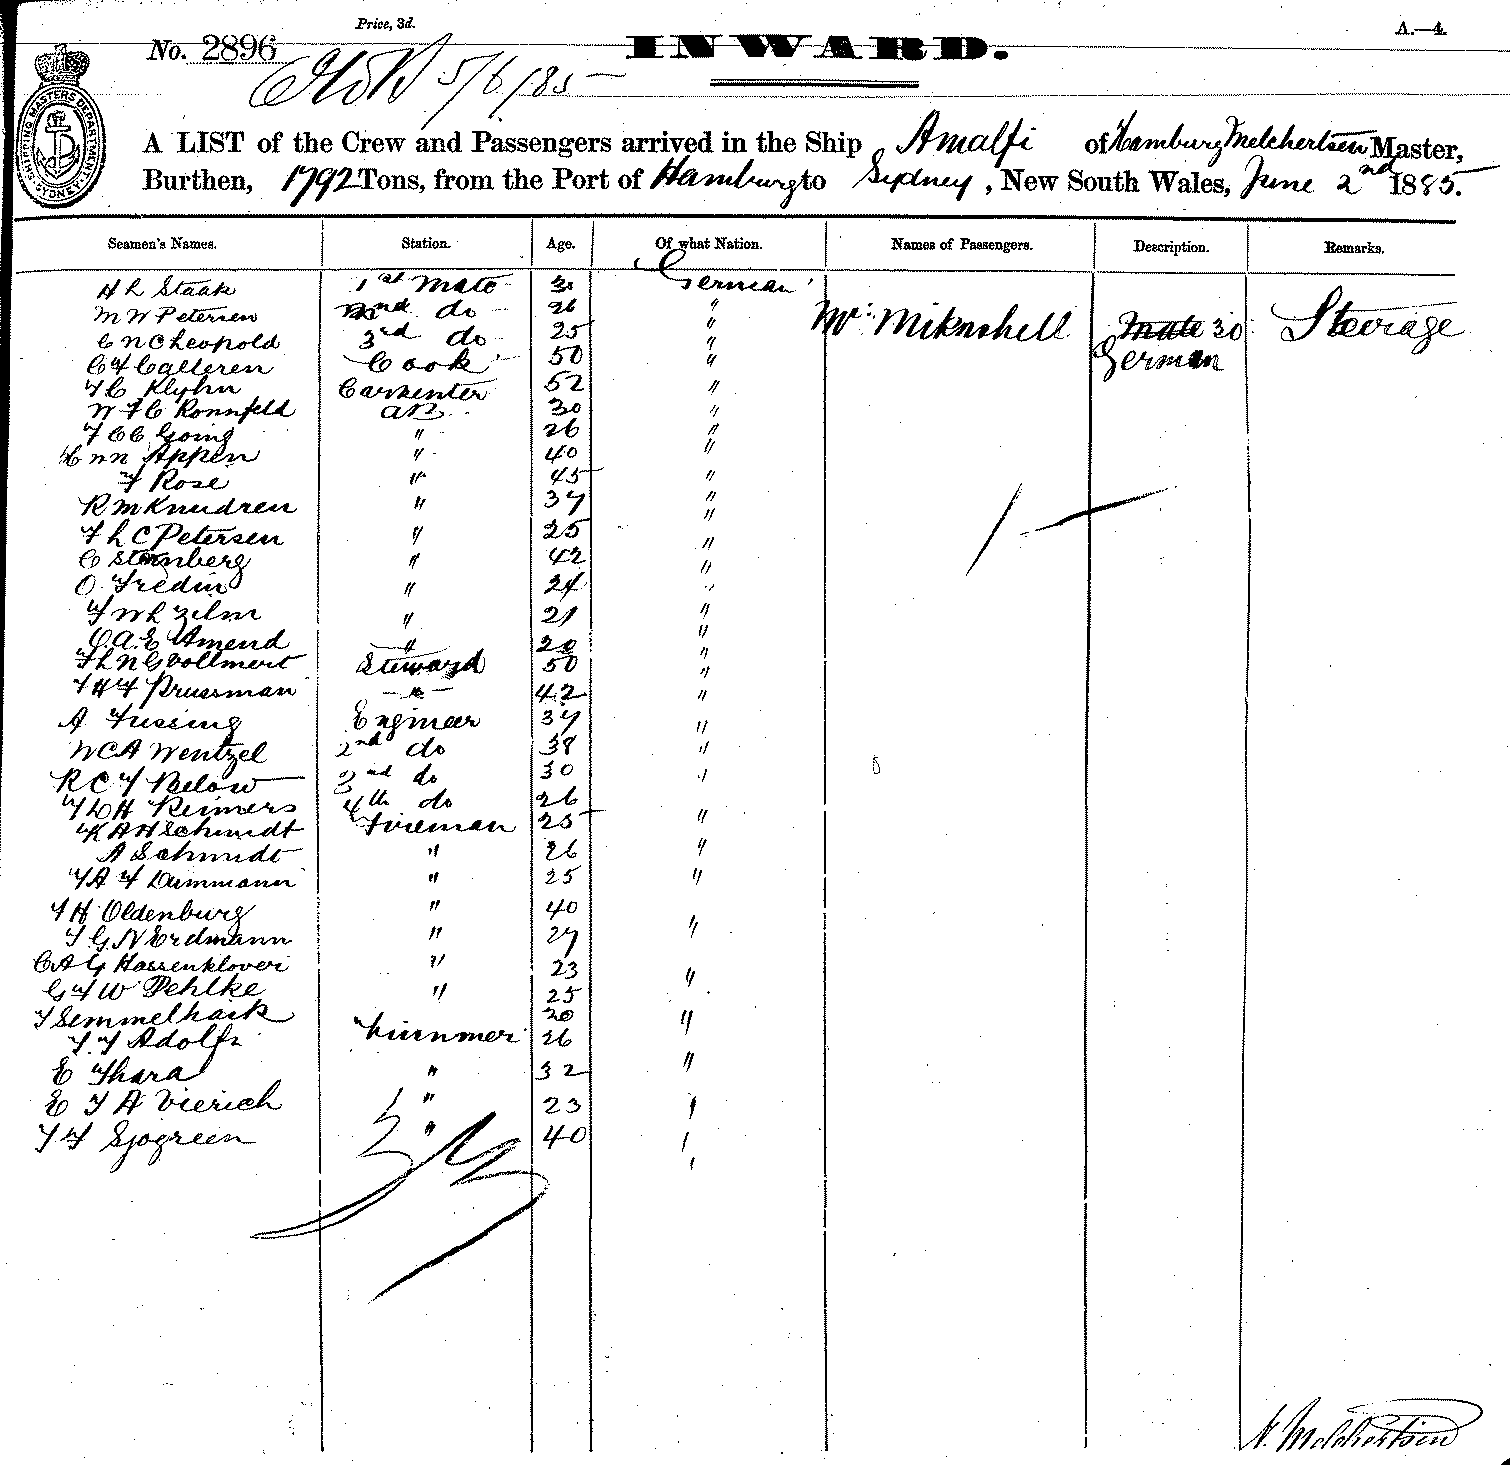 Price, 3d.
A.—4.
No. 2896
INWARD.
5/6/85
SHIPPING MASTERS DEPARTMENT SYDNEY
A LIST of the Crew and Passengers arrived in the Ship Amalfi of Hamburg Melchertsen Master,
Burthen, 1792 Tons, from the Port of Hamburg to Sydney, New South Wales, June 2nd 1885.
Seamen's Names. Station. Age. Of what Nation. Names of Passengers. Description. Remarks.
H L Staak 1st Mate 30 German
M W Petersen 2nd do 26 " Mr. Miknshell Male 30 Steerage
C N C Leopold 3rd do 25 "
C F Calleren Cook 50 " German
F C Klyhn Carpenter 52 "
W F C Ronnfeld AB 30 "
F C C Going " 26 "
H nn Appen " 40 "
F Rose " 45 "
R M Knudren " 37 "
F L C Petersen " 25 "
C Sternberg " 42 "
O. Fredin " 24 "
F W L Zilm " 21 "
O. A. E Amend " 20 "
F L N G Vollmert Steward 50 "
F H F Prussman " 42 "
A Fussing Engineer 37 "
W C A Wentzel 2nd do 38 "
R C F Below 3nd do 30 "
F D H Reimers 4th do 26 "
K A H Schmidt Fireman 25 "
A Schmidt " 26 "
F A F Dammann " 25 "
F H Oldenburg " 40 "
F G N Erdmann " 27
C A G Hassenklover " 23 "
G F W Pehlke " 25
F Semmelhaik 20 "
F. F Adolfi Trimmer 26
E Thara " 32 "
E F A Vierich " 23 "
F F Sjogreen " 40 "
H. Melchertsen